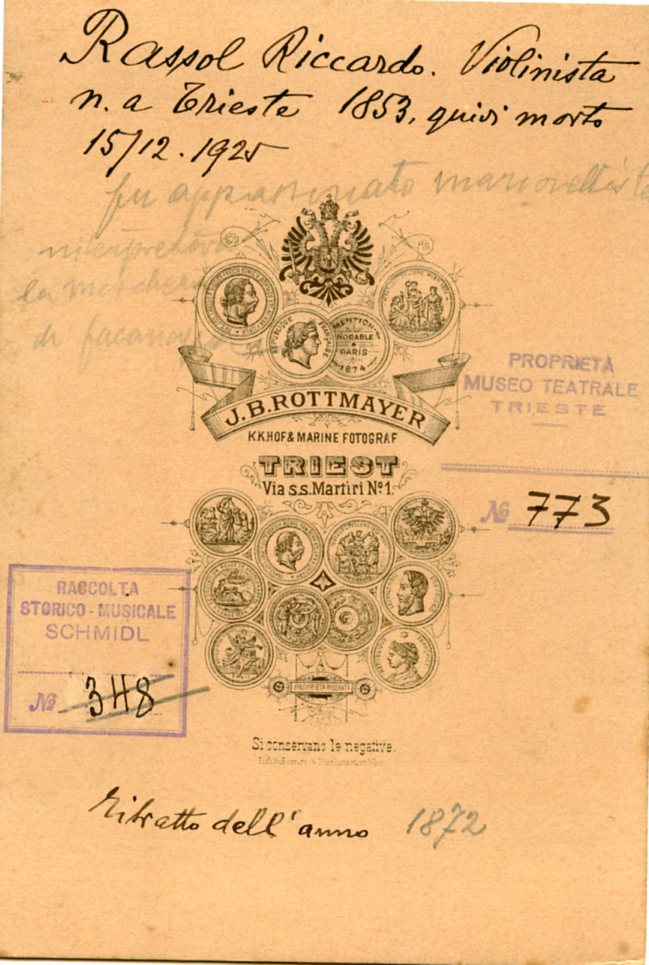 Rassol Riccardo. Violinista
n. a Trieste 1853, quivi morto
15/12.1925
fu appassionato marionettista
interpretava
la maschera
di facanapa
RÉPUBLIQUE FRANÇAISE
MENTION HORABLE PARIS 1874
J.B.ROTTMAYER
K.K.HOF & MARINE FOTOGRAF
TRIEST
Via s.s. Martiri No 1.
PROPRIETÀ
MUSEO TEATRALE
TRIESTE
No 773
RACCOLTA
STORICO-MUSICALE
SCHMIDL
No 348
PROPRIETA RISERVATA
Si conservano le negative.
Ritratto dell'anno 1872